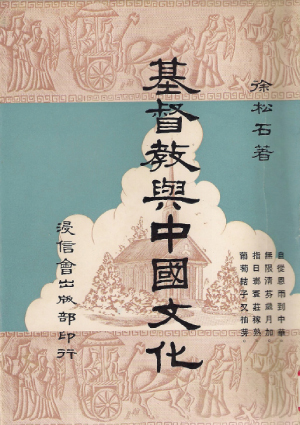 徐松石著
自從恩雨到中華
無限清芬歲月加
指日莊稼熟
葡萄結子又抽芽
基督教與中國文化
浸信會出版部印行